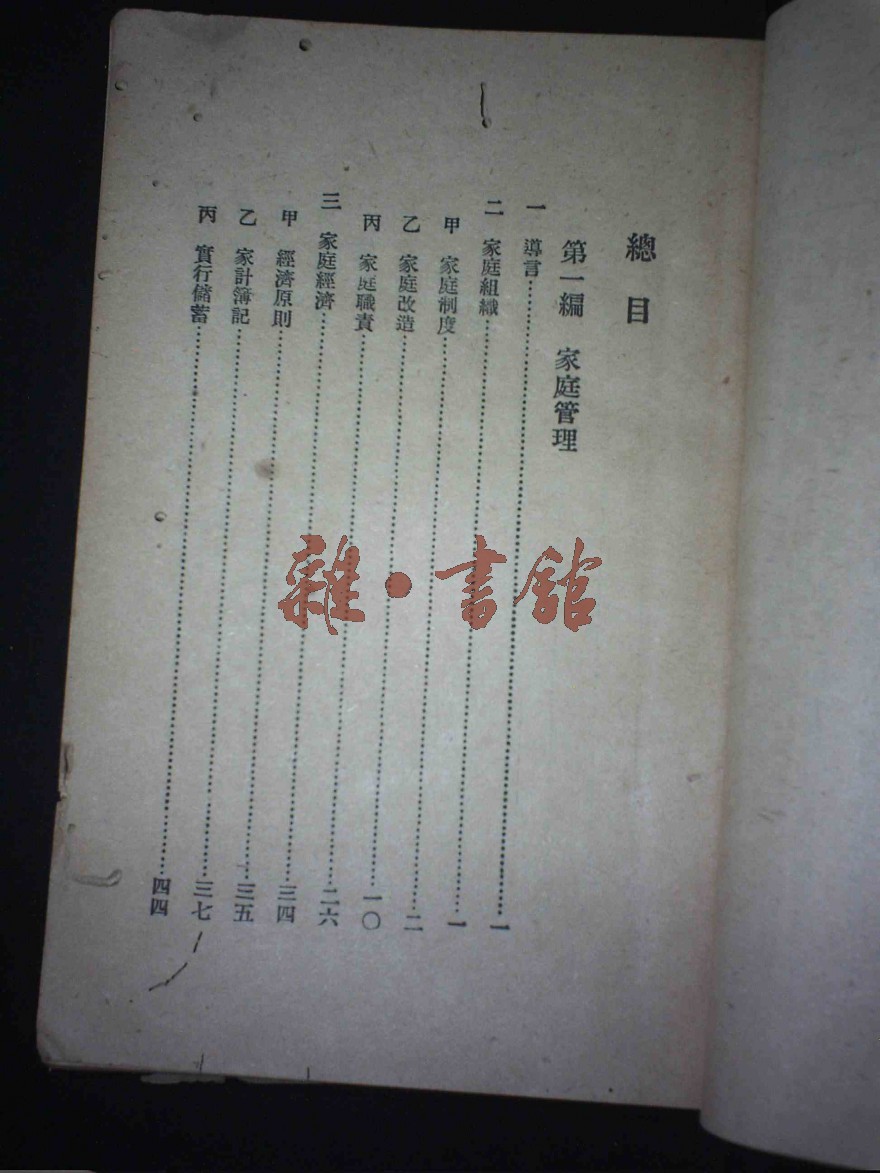 總目
第一編　家庭管理
一　導言……一
二　家庭組織……一
甲　家庭制度……二
乙　家庭改造……一〇
丙　家庭職責……二六
三　家庭經濟……三四
甲　經濟原則……三五
乙　家計簿記……三七
丙　實行儲蓄……四四
雜·書館